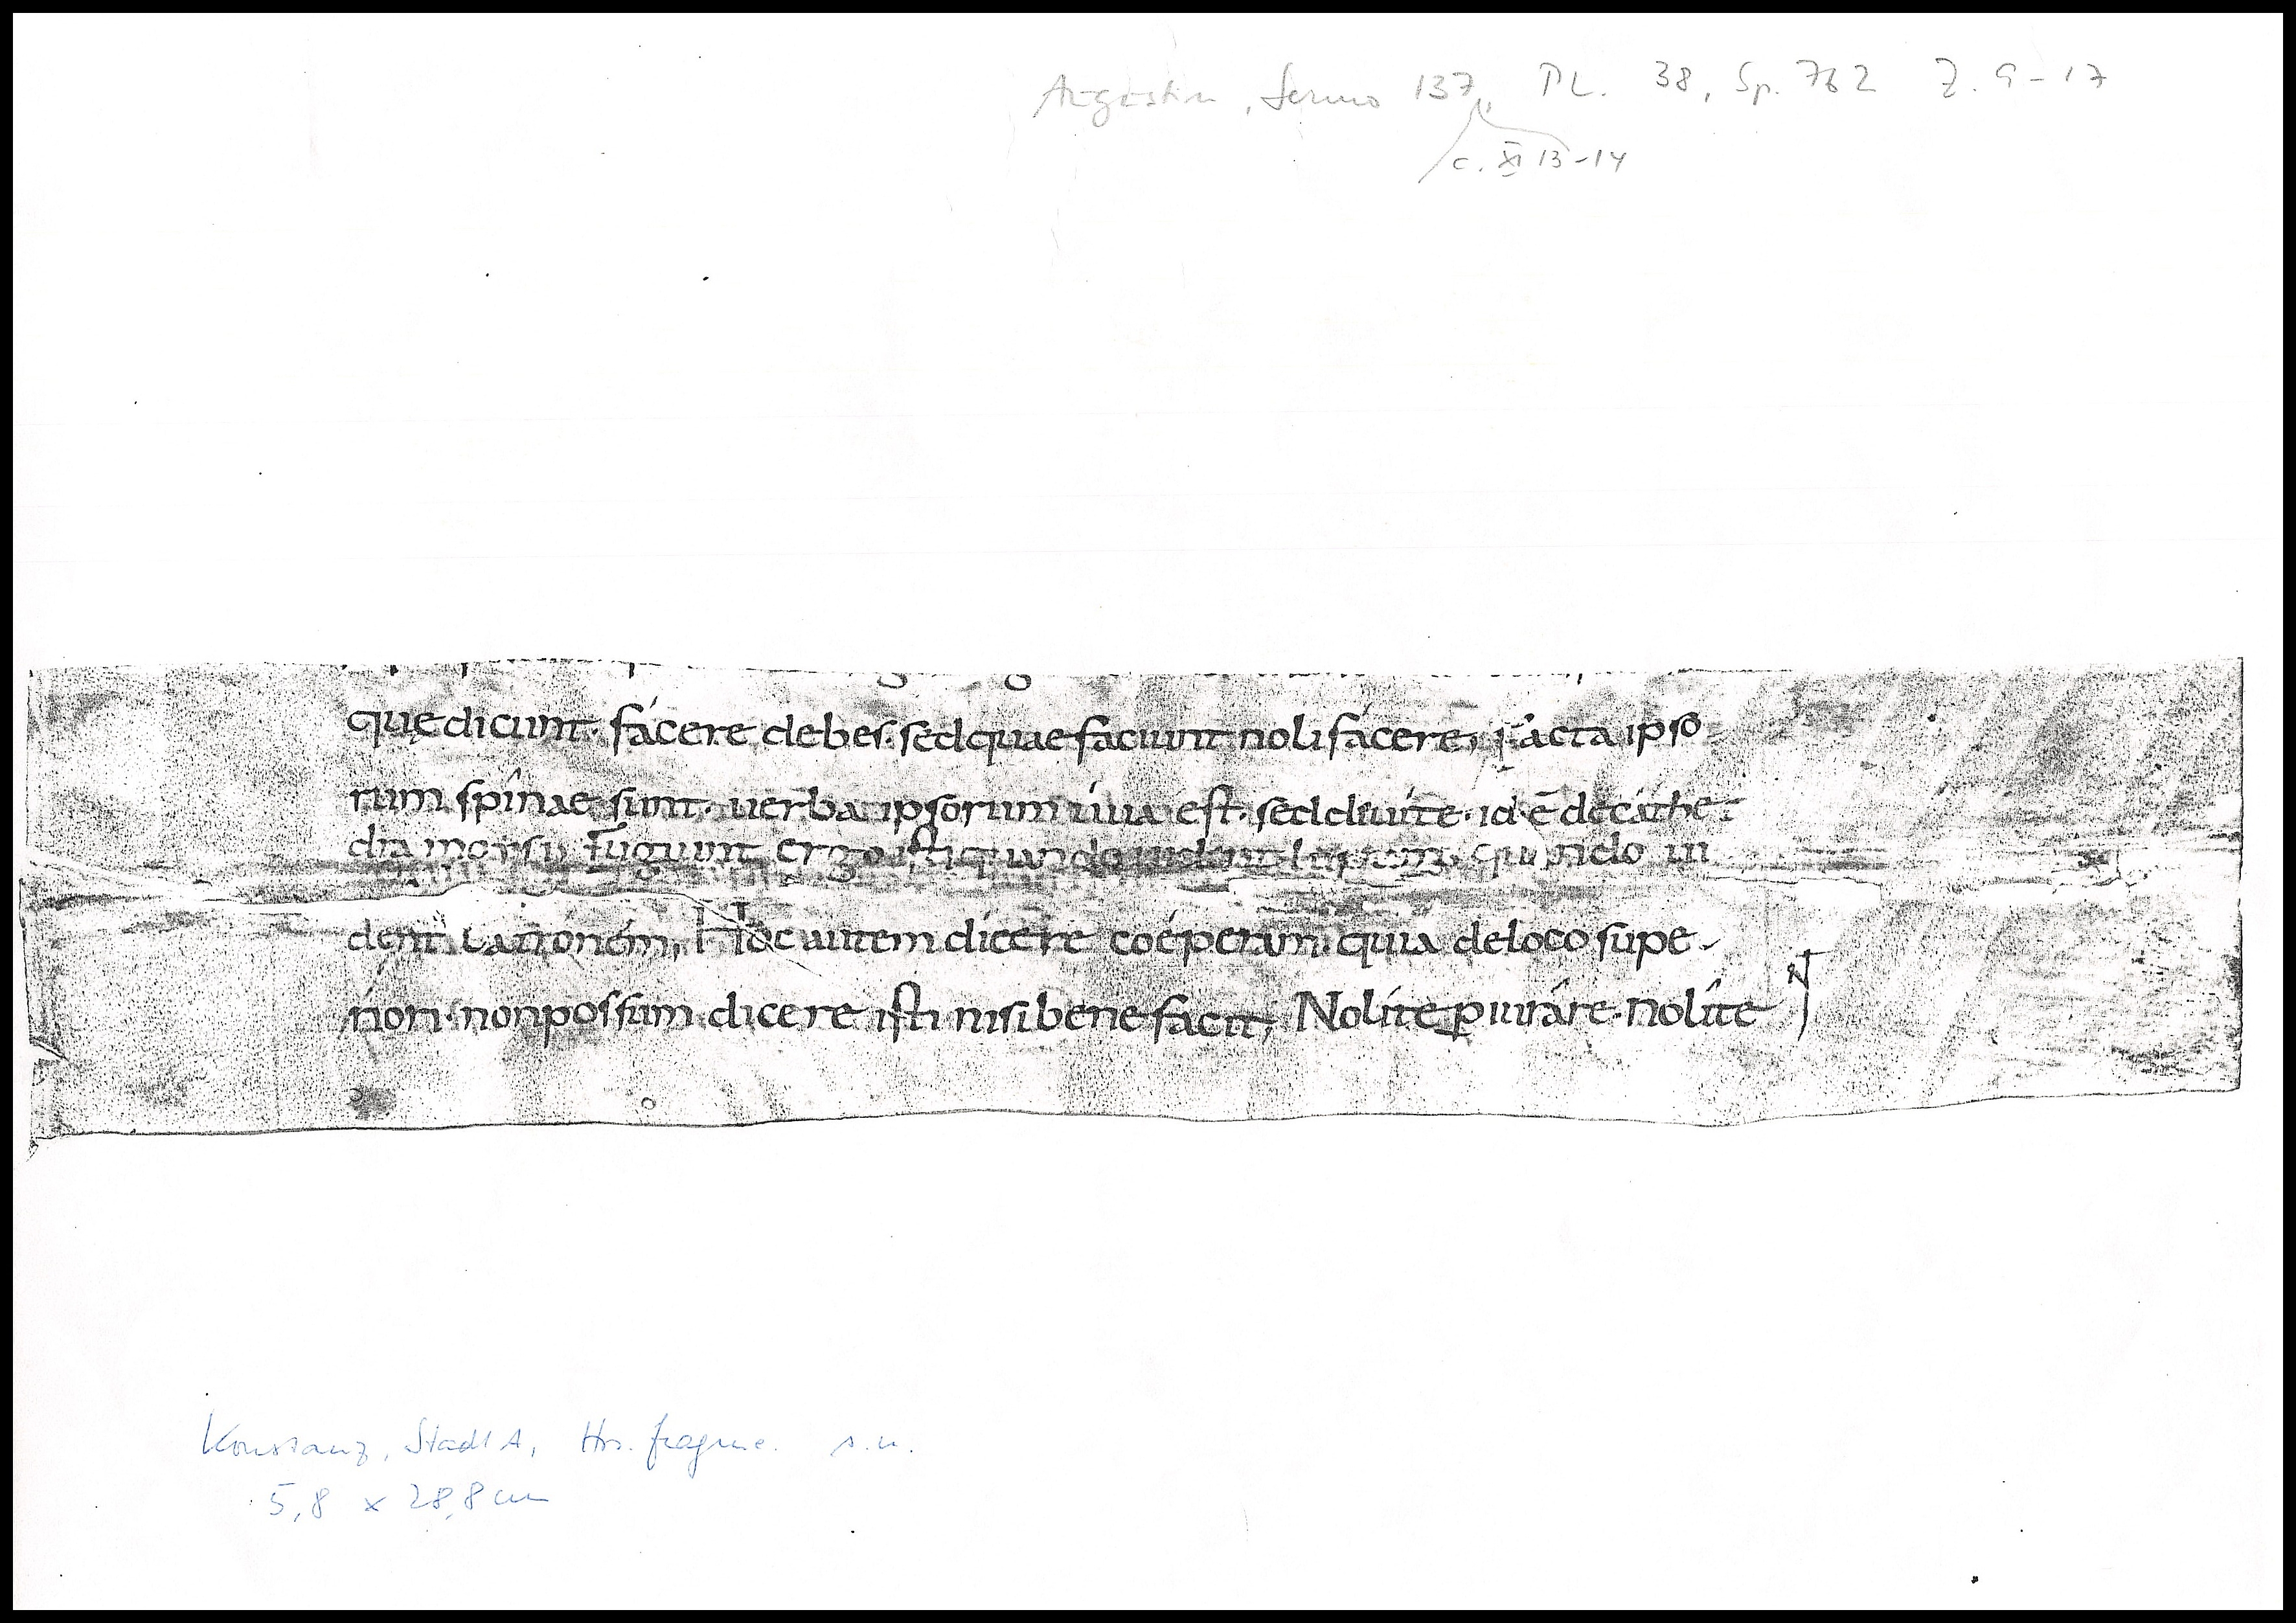 Augustin, Sermo 137, PL. 38, Sp. 762 Z. 9-17
c. XI 13-14
quę dicunt · fácere debes · sed quae faciunt noli fácere; Facta ipso
rum spinae sunt · uerba ipsorum uua est · sed de uite · id ē de cathe
dra moysi; Fugiunt ergo isti quando uident lupum, quando ui
dent latronem; Hoc autem dicere coéperam · quia de loco supe
riori · non possum dicere isti nisi bene facit; Nolite p iuráre · nolite N
Konstanz, StadtA, Hss. fragme. s.n.
5,8 x 28,8 cm